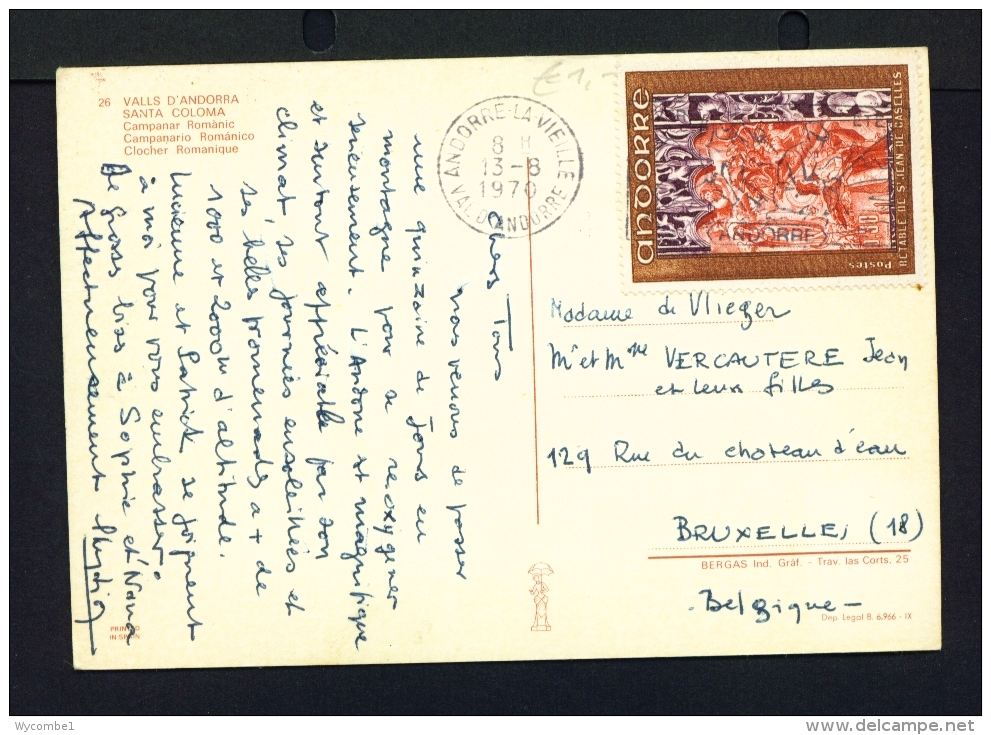 26 VALLS D'ANDORRA
SANTA COLOMA
Campanar Romànic
Campanario Románico
Clocher Romanique
€1,-
ANDORRE-LA-VIEILLE
8 H
13-8
1970
VAL D'ANDORRE
andorre
RETABLE DE St JEAN DE CASELLES
Postes
0,30
ANDORRE
Chers Tous
nous venons de passer
une quinzaine de jours en
montagne pour se réoxygéner
sérieusement. L'Andorre est magnifique
et surtout appréciable par son
climat, ses journées ensoleillées et
ses belles promenades a + de
1000 et 2000m d'altitude.
et Patrick se joignent
à moi pour vous embrasser.
De Gross biss à Sophie et Nana
Affectueusement
Madame de Vlieger
Mr et Mme VERCAUTERE Jean
et leurs filles
129 Rue du chateau d'eau
BRUXELLES (18)
Belgique -
BERGAS Ind. Gráf. - Trav. las Corts, 25
Dep. Legal B. 6.966 - IX
PRINTED
IN SPAIN
Wycombe1
www.delcampe.net